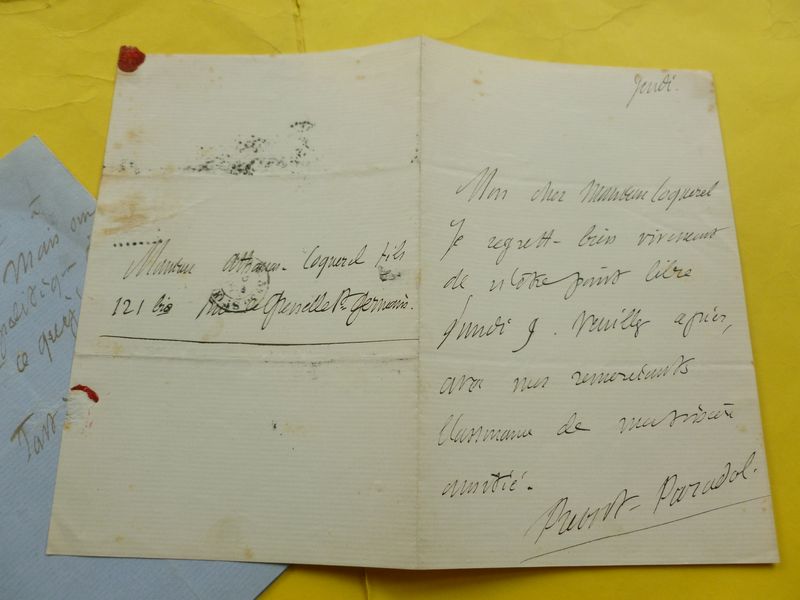 Mais on
ce que
Tant
Monsieur Athanase Coquerel fils
121 bis rue de Grenelle St Germain.
Jeudi.
Mon cher Monsieur Coquerel
Je regrette bien vivement
de n'être point libre
lundi 9. Veuillez agréer,
avec mes remerciments
l'assurance de ma sincère
amitié.
Prevost-Paradol.